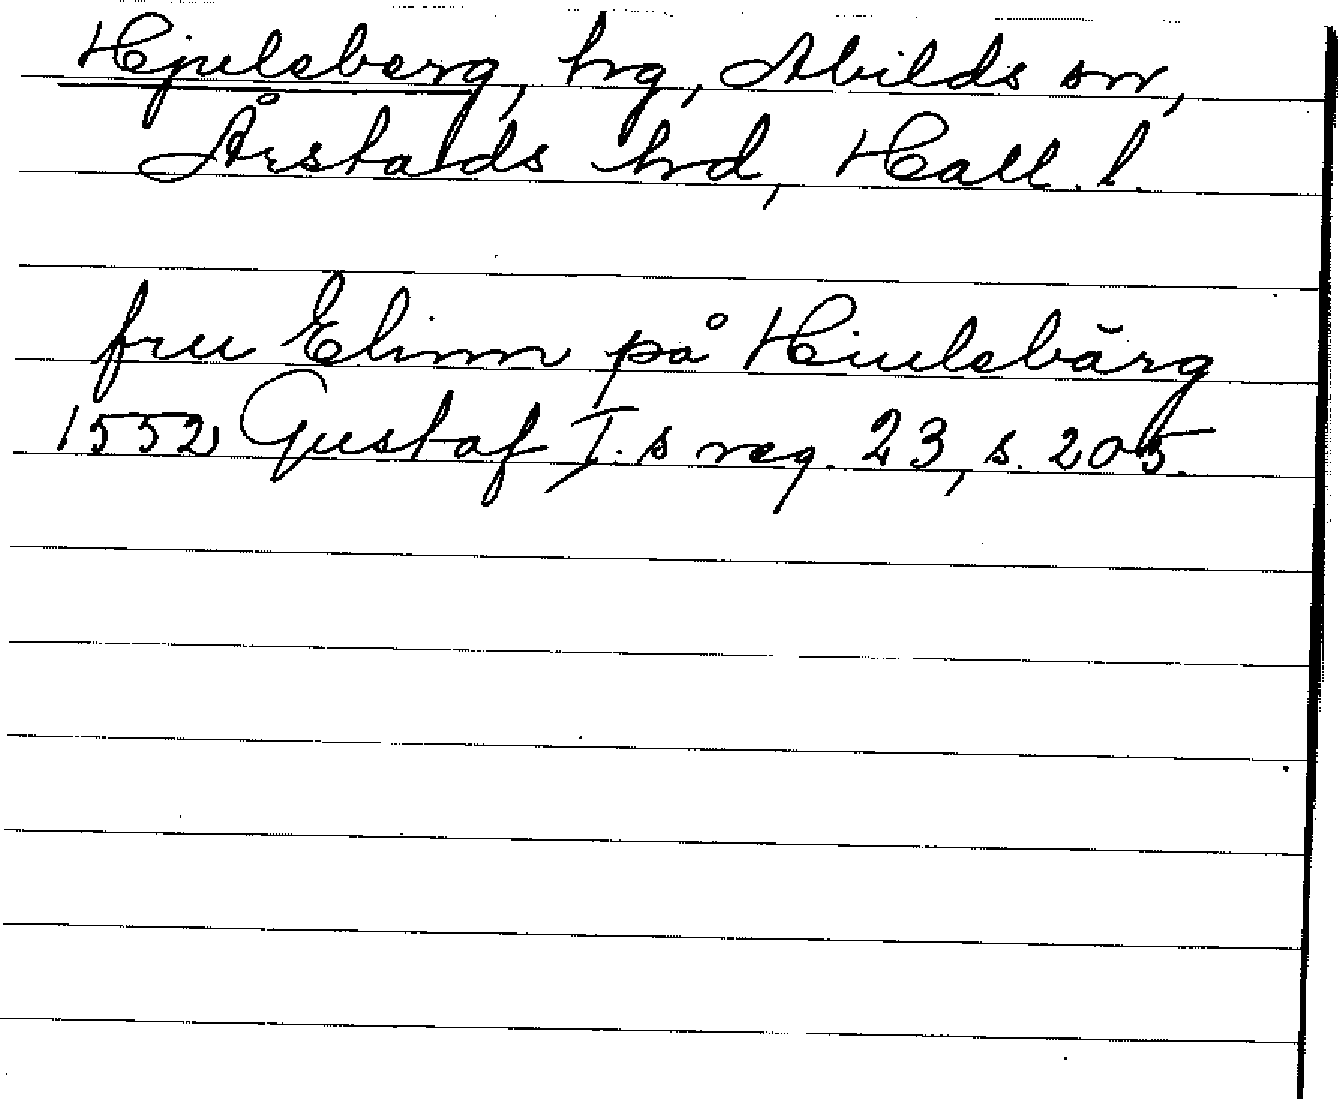 Hjulsberg, hrg, Abilds sn,
Årstads hrd, Hall. l.
fru Elinn på Hiulsbärg
1552 Gustaf I.s reg. 23, s. 205.